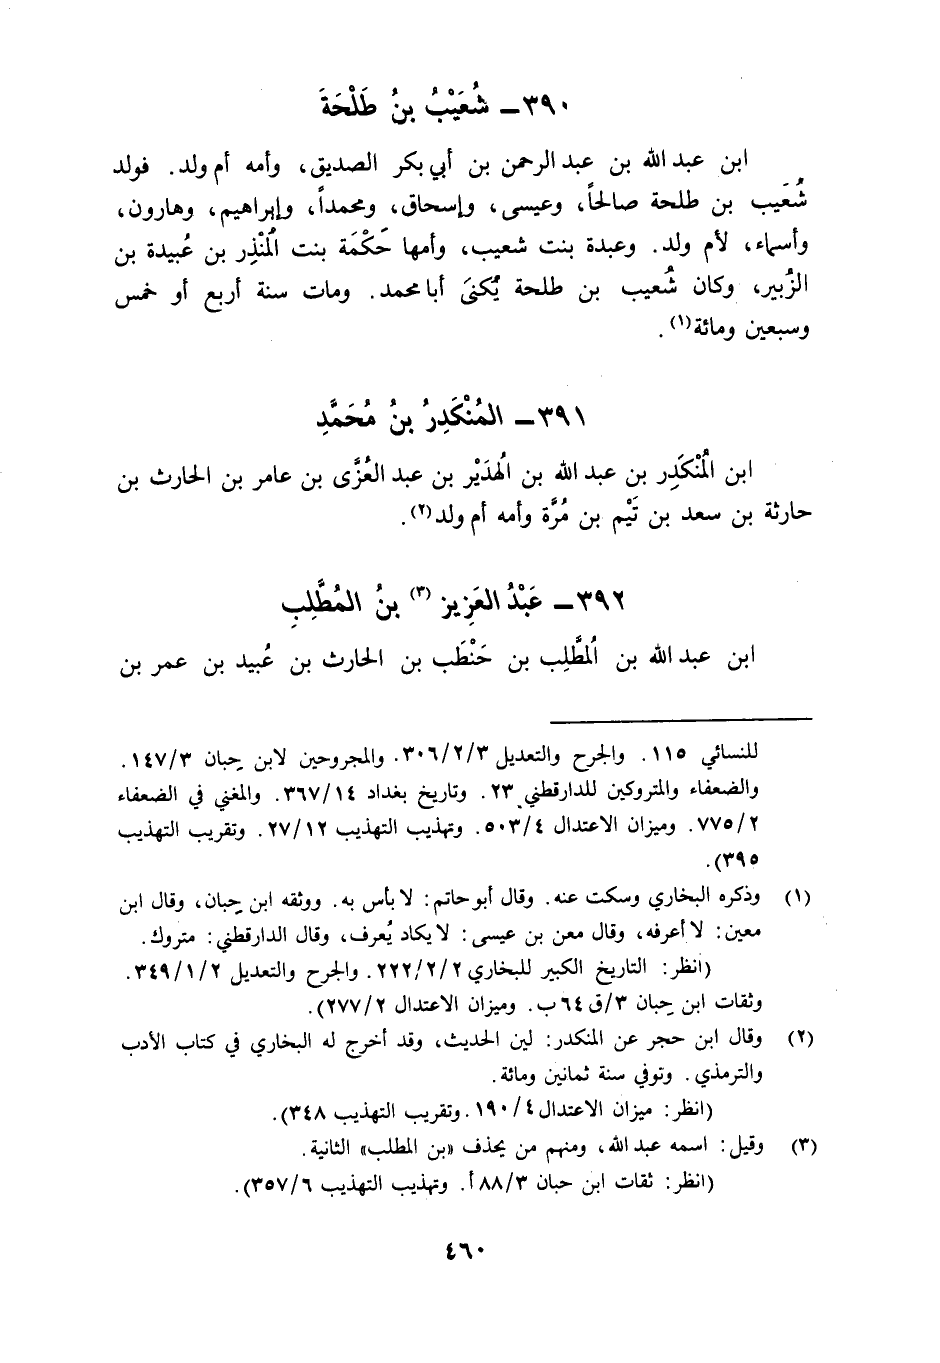 ٣٩٠ـ شُعَيْبُ بنُ طَلْحَةَ
ابن عبد الله بن عبد الرحمن بن أبي بكر الصديق، وأمه أم ولد. فولد
شُعَيب بن طلحة صالحاً، وعيسى، وإسحاق، ومحمداً، وإبراهيم، وهارون،
وأسماء، لأم ولد. وعبدة بنت شعيب، وأمها حَكْمَة بنت الُمنْذِر بن عُبيدة بن
الزُبير، وكان شُعيب بن طلحة يُكنىَ أبا محمد. ومات سنة أربع أو خمس
وسبعين ومائة(١).
٣٩١ـ المُنْكَدِرُ بنُ مُحَمَّدِ
ابن الُمنْكَدِر بن عبد الله بن الُهدَيْر بن عبد العُزَّى بن عامر بن الحارث بن
حارثة بن سعد بن تَيْم بن مُرَّة وأمه أم ولد(٢).
٣٩٢ـ عَبْدُ العَزِيز (٣) بنُ المُطَّلِبِ
ابن عبد الله بن الُمطَّلِب بن حَنْطَب بن الحارث بن عُبيد بن عمر بن
للنسائي ١١٥. والجرح والتعديل ٣٠٦/٢/٣. والمجروحين لابن حِبان ١٤٧/٣.
والضعفاء والمتروكين للدارقطني ٢٣. وتاريخ بغداد ٣٦٧/١٤. والمغني في الضعفاء
٧٧٥/٢. وميزان الاعتدال ٥٠٣/٤. وتهذيب التهذيب ٢٧/١٢. وتقريب التهذيب
٣٩٥).
(١) وذكره البخاري وسكت عنه. وقال أبو حاتم: لا بأس به. ووثقه ابن حِبان، وقال ابن
معين: لا أعرفه، وقال معن بن عيسى: لا يكاد يُعرف، وقال الدارقطني: متروك.
(انظر: التاريخ الكبير للبخاري ٢٢٢/٢/٢. والجرح والتعديل ٣٤٩/١/٢.
وثقات ابن حِبان ٣/ق ٦٤ ب. وميزان الاعتدال ٢٧٧/٢).
(٢) وقال ابن حجر عن المنكدر: لين الحديث، وقد أخرج له البخاري في كتاب الأدب
والترمذي. وتوفي سنة ثمانين ومائة.
(انظر: ميزان الاعتدال ١٩٠/٤. وتقريب التهذيب ٣٤٨).
(٣) وقيل: اسمه عبد الله، ومنهم من يحذف «بن المطلب» الثانية.
(انظر: ثقات ابن حبان ٨٨/٣ أ. وتهذيب التهذيب ٣٥٧/٦).
٤٦٠